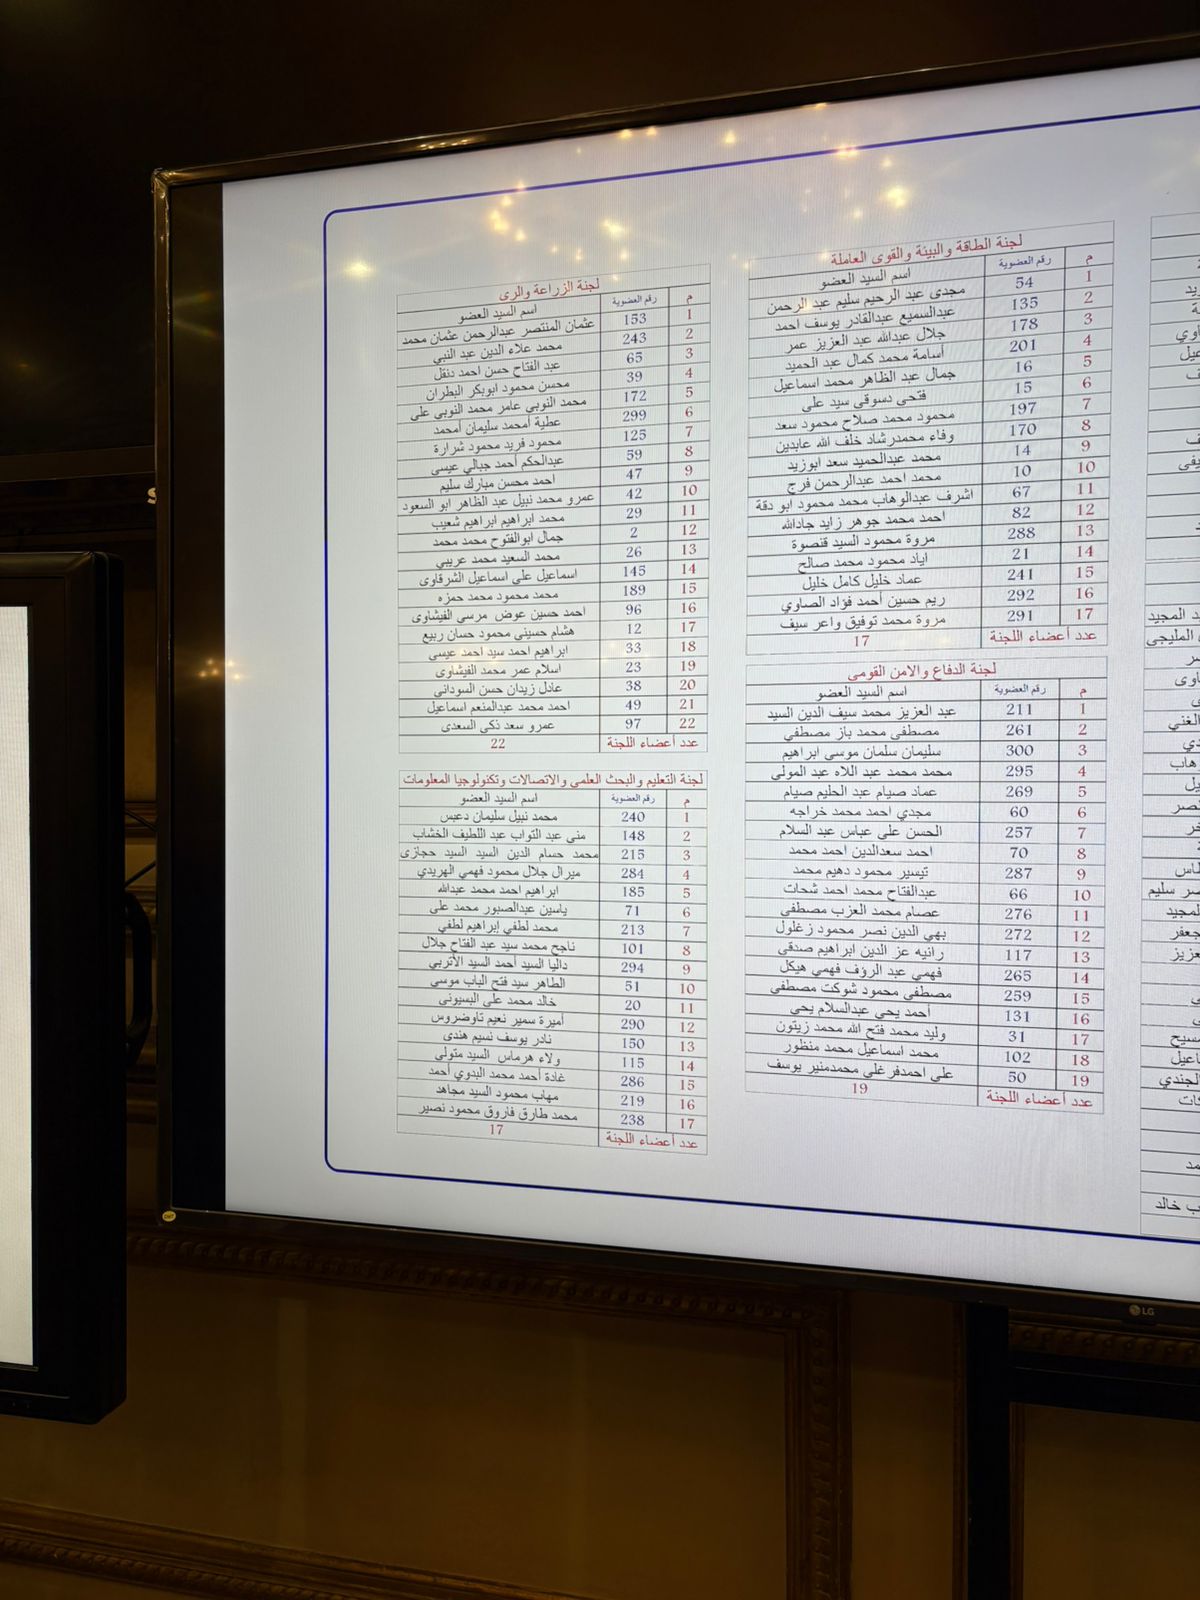 لجنة الطاقة والبيئة والقوى العاملة
م رقم العضوية اسم السيد العضو
1 54 مجدى عبد الرحيم سليم عبد الرحمن
2 135 عبدالسميع عبدالقادر يوسف احمد
3 178 جلال عبدالله عبد العزيز عمر
4 201 أسامة محمد كمال عبد الحميد
5 16 جمال عبد الظاهر محمد اسماعيل
6 15 فتحى دسوقى سيد على
7 197 محمود محمد صلاح محمود سعد
8 170 وفاء محمدرشاد خلف الله عابدين
9 14 محمد عبدالحميد سعد ابوزيد
10 10 محمد احمد عبدالرحمن فرج
11 67 اشرف عبدالوهاب محمد محمود ابو دقة
12 82 احمد محمد جوهر زايد جادالله
13 288 مروة محمود السيد قنصوة
14 21 اياد محمود محمد صالح
15 241 عماد خليل كامل خليل
16 292 ريم حسين أحمد فؤاد الصاوي
17 291 مروة محمد توفيق واعر سيف
عدد أعضاء اللجنة 17
لجنة الدفاع والامن القومى
م رقم العضوية اسم السيد العضو
1 211 عبد العزيز محمد سيف الدين السيد
2 261 مصطفى محمد باز مصطفي
3 300 سليمان سلمان موسى ابراهيم
4 295 محمد محمد عبد اللاه عبد المولى
5 269 عماد صيام عبد الحليم صيام
6 60 مجدي احمد محمد خراجه
7 257 الحسن على عباس عبد السلام
8 70 احمد سعدالدين احمد محمد
9 287 تيسير محمود دهيم محمد
10 66 عبدالفتاح محمد احمد شحات
11 276 عصام محمد العزب مصطفى
12 272 بهي الدين نصر محمود زغلول
13 117 رانيه عز الدين ابراهيم صدقى
14 265 فهمي عبد الرؤف فهمي هيكل
15 259 مصطفى محمود شوكت مصطفى
16 131 أحمد يحي عبدالسلام يحي
17 31 وليد محمد فتح الله محمد زيتون
18 102 محمد اسماعيل محمد منظور
19 50 على احمدفرغلي محمدمنير يوسف
عدد أعضاء اللجنة 19
لجنة الزراعة والرى
م رقم العضوية اسم السيد العضو
1 153 عثمان المنتصر عبدالرحمن عثمان محمد
2 243 محمد علاء الدين عبد النبي
3 65 عبد الفتاح حسن احمد دنقل
4 39 محسن محمود ابوبكر البطران
5 172 محمد النوبي عامر محمد النوبي على
6 299 عطية أمحمد سليمان أمحمد
7 125 محمود فريد محمود شرارة
8 59 عبدالحكم أحمد جبالي عيسى
9 47 احمد محسن مبارك سليم
10 42 عمرو محمد نبيل عبد الظاهر ابو السعود
11 29 محمد ابراهيم ابراهيم شعيب
12 2 جمال ابوالفتوح محمد محمد
13 26 محمد السعيد محمد عريبي
14 145 اسماعيل على اسماعيل الشرقاوى
15 189 محمد محمود محمد حمزه
16 96 احمد حسين عوض مرسى الفيشاوى
17 12 هشام حسينى محمود حسان ربيع
18 33 ابراهيم احمد سيد احمد عيسى
19 23 اسلام عمر محمد الفيشاوى
20 38 عادل زيدان حسن السودانى
21 49 احمد محمد عبدالمنعم اسماعيل
22 97 عمرو سعد ذكى السعدى
عدد أعضاء اللجنة 22
لجنة التعليم والبحث العلمى والاتصالات وتكنولوجيا المعلومات
م رقم العضوية اسم السيد العضو
1 240 محمد نبيل سليمان دعبس
2 148 منى عبد التواب عبد اللطيف الخشاب
3 215 محمد حسام الدين السيد السيد حجازى
4 284 ميرال جلال محمود فهمي الهريدي
5 185 ابراهيم احمد محمد عبدالله
6 71 ياسين عبدالصبور محمد على
7 213 محمد لطفي إبراهيم لطفي
8 101 ناجح محمد سيد عبد الفتاح جلال
9 294 داليا السيد أحمد السيد الأتربي
10 51 الطاهر سيد فتح الباب موسي
11 20 خالد محمد على البسيونى
12 290 أميرة سمير نعيم تاوضروس
13 150 نادر يوسف نسيم هندى
14 115 ولاء هرماس السيد متولى
15 286 غادة أحمد محمد البدوي أحمد
16 219 مهاب محمود السيد مجاهد
17 238 محمد طارق فاروق محمود نصير
عدد أعضاء اللجنة 17
LG